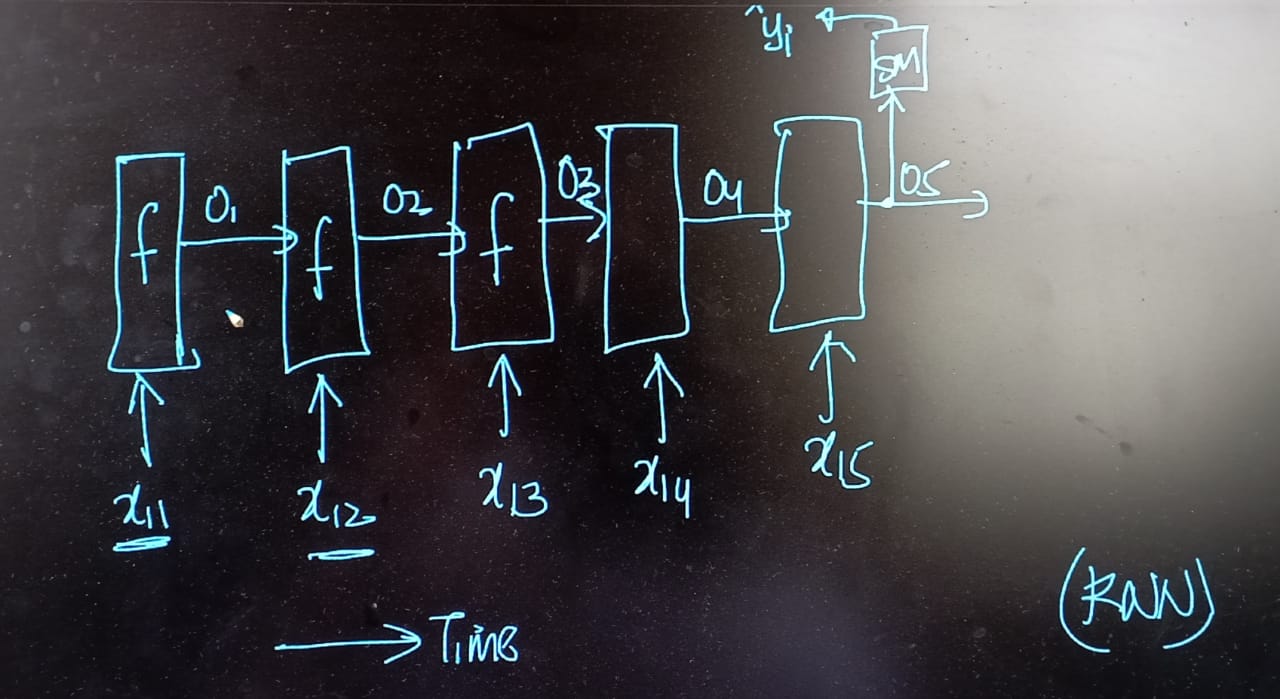 ŷᵢ
SM
f
O₁
f
O₂
f
O₃
O₄
O₅
x₁₁
x₁₂
x₁₃
x₁₄
x₁₅
Time